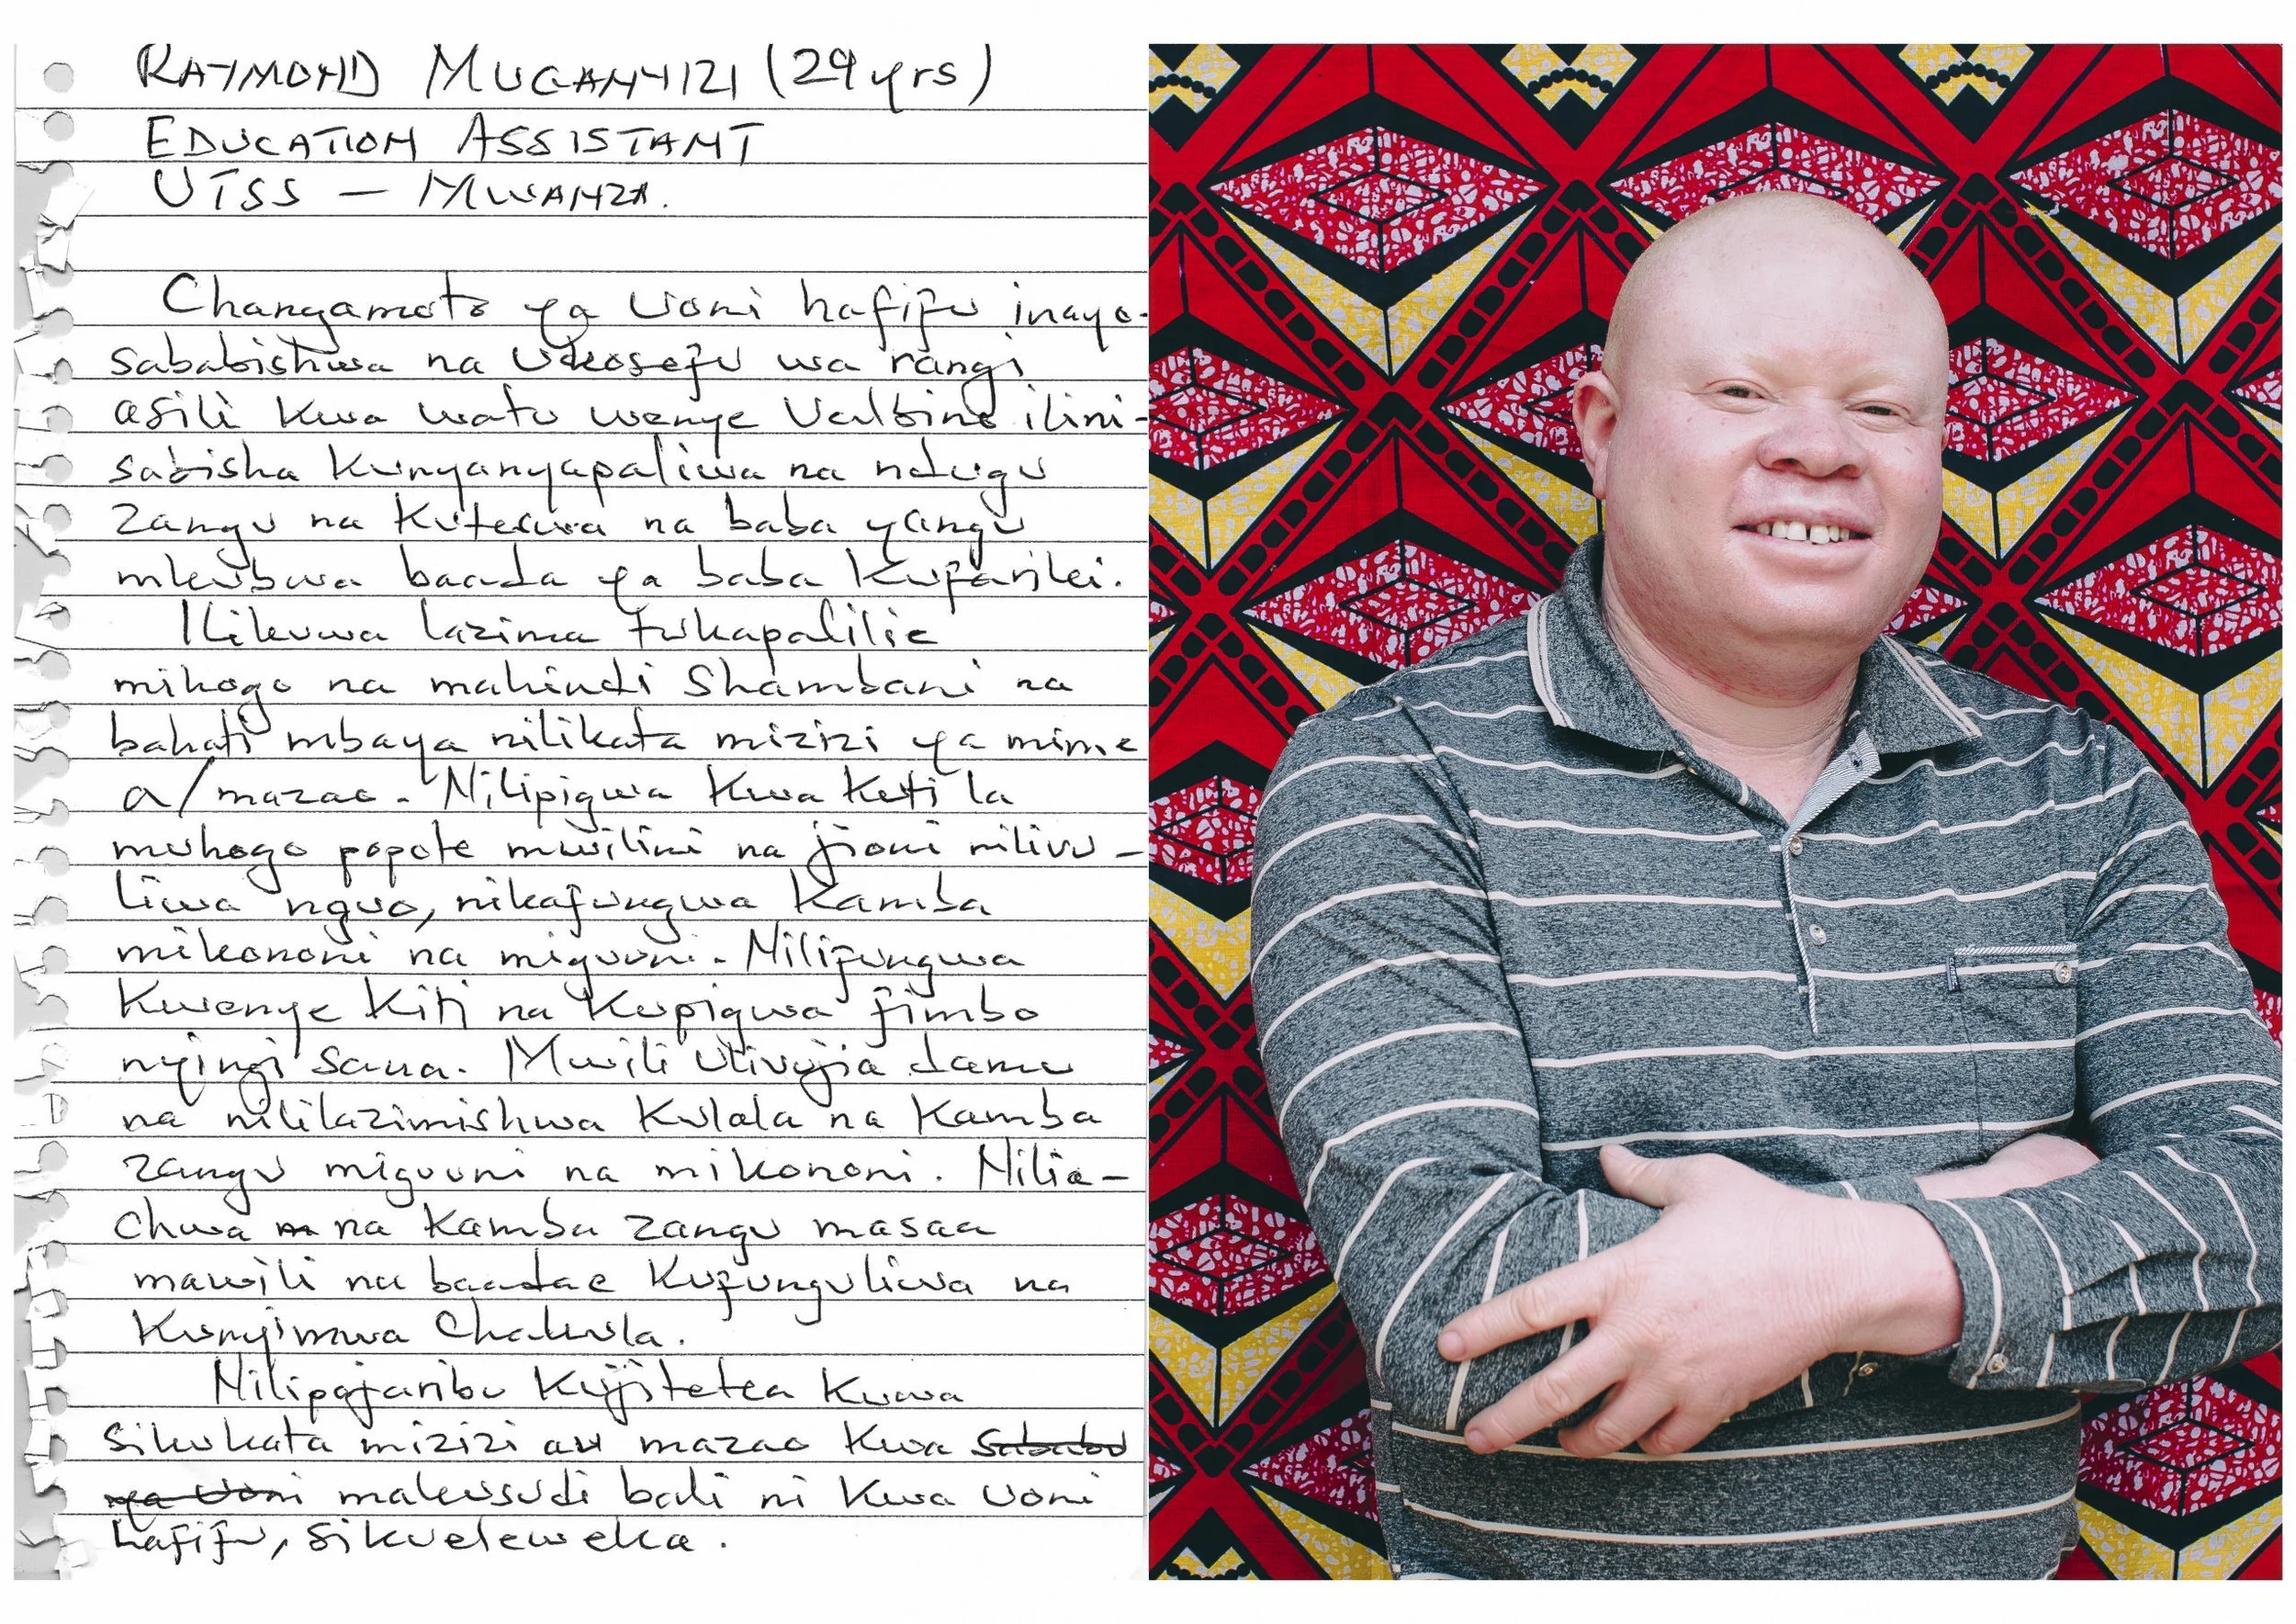 RAYMOND MUGANYIZI (29 yrs)
EDUCATION ASSISTANT
UTSS – MWANZA.
Changamoto ya Uoni hafifu inayo-
sababishwa na Ukosefu wa rangi
asili kwa watu wenye Ualbino ilini-
sabisha Kunyanyapaliwa na ndugu
zangu na Kuteswa na baba yangu
mkubwa baada ya baba Kufariki.
Ilikuwa lazima tukapalilie
mihogo na mahindi Shambani na
bahati mbaya nilikata mizizi ya mime
a/mazao. Nilipigwa Kwa Keti la
muhogo popote mwilini na jioni nilivu-
liwa nguo, nikafungwa Kamba
mikononi na miguuni. Nilifungwa
Kwenye Kiti na Kupigwa fimbo
nyingi sana. Mwili Ulivujia damu
na nililazimishwa Kulala na Kamba
zangu miguuni na mikononi. Nilia-
chwa na Kamba zangu masaa
mawili na baadae Kufunguliwa na
Kunyimwa Chakula.
Nilipojaribu Kujitetea Kuwa
Sikukata mizizi au mazao Kwa Sababu
ya Uoni makusudi bali ni Kwa Uoni
hafifu, Sikueleweka.